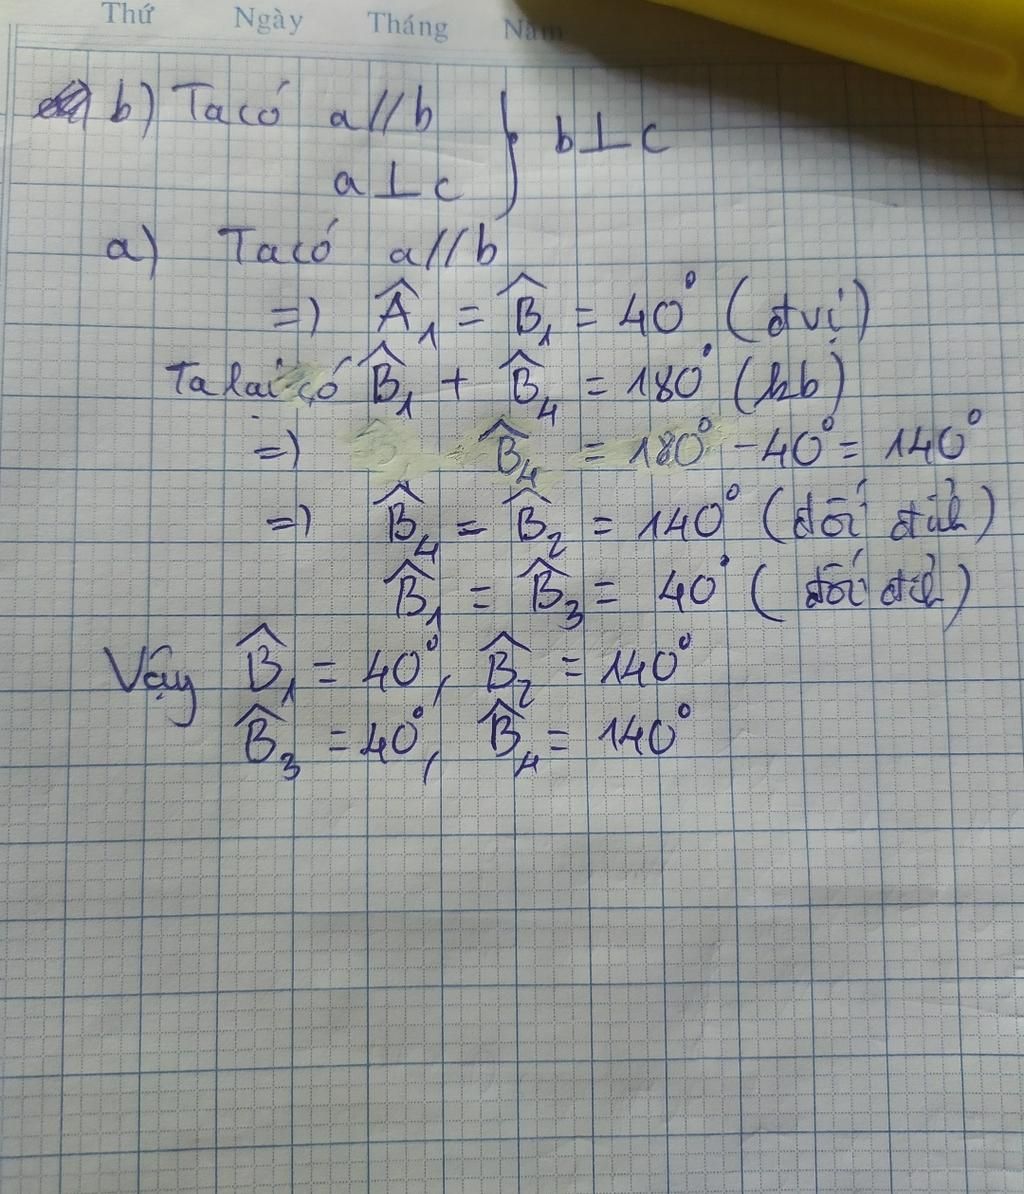 Thứ Ngày Tháng Năm
b) Ta có a//b
a⊥c } b⊥c
a) Ta có a//b
=) Â₁ = B̂₁ = 40° (đvị)
Ta lại có B̂₁ + B̂₄ = 180° (kb)
=) B̂₄ = 180° - 40° = 140°
=) B̂₄ = B̂₂ = 140° (đối đỉnh)
B̂₁ = B̂₃ = 40° (đối đỉnh)
Vậy B̂₁ = 40°, B̂₂ = 140°
B̂₃ = 40°, B̂₄ = 140°